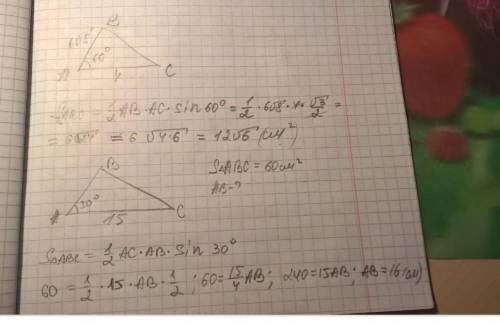 B
6√8
60°
A 4 C
S△ABC = 1/2 AB · AC · sin 60° = 1/2 · 6√8 · 4 · √3/2 =
= 6√4·6 = 12√6 (см²)
B
S△ABC = 60 см²
AB - ?
30°
A 15 C
S△ABC = 1/2 AC · AB · sin 30°
60 = 1/2 · 15 · AB · 1/2 ; 60 = 15/4 AB ; 240 = 15AB ; AB = 16 (см)